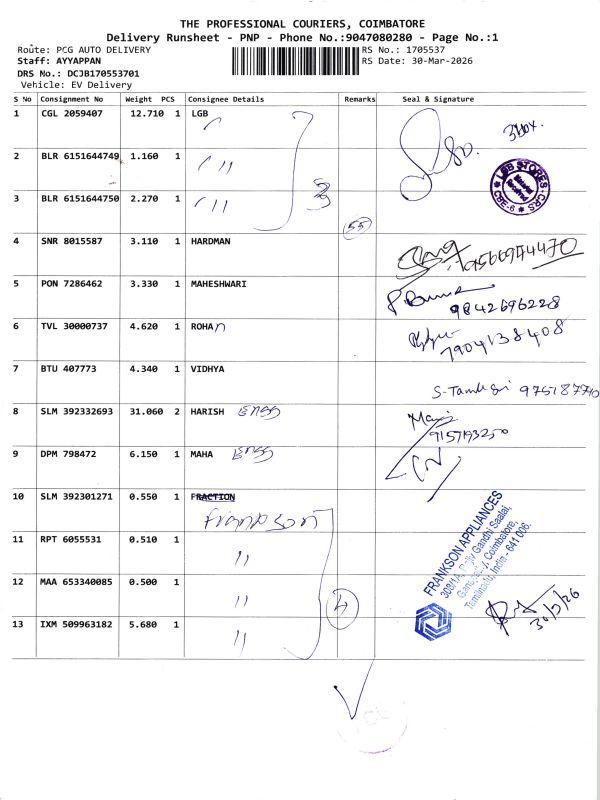 THE PROFESSIONAL COURIERS, COIMBATORE
Delivery Runsheet - PNP - Phone No.:9047080280 - Page No.:1
Route: PCG AUTO DELIVERY
RS No.: 1705537
Staff: AYYAPPAN
RS Date: 30-Mar-2026
DRS No.: DCJB170553701
Vehicle: EV Delivery
S No Consignment No Weight PCS Consignee Details Remarks Seal & Signature
1 CGL 2059407 12.710 1 LGB
3Box.
2 BLR 6151644749 1.160 1 "
3 BLR 6151644750 2.270 1 "
LGB STORES CRS CBE-6
Material Received
55
4 SNR 8015587 3.110 1 HARDMAN
9566954470
5 PON 7286462 3.330 1 MAHESHWARI
9842696228
6 TVL 30000737 4.620 1 ROHAn
7904138408
7 BTU 407773 4.340 1 VIDHYA
8 SLM 392332693 31.060 2 HARISH
9157193250
9 DPM 798472 6.150 1 MAHA
10 SLM 392301271 0.550 1 FRACTION
Frankson
11 RPT 6055531 0.510 1 "
12 MAA 653340085 0.500 1 "
13 IXM 509963182 5.680 1 "
4
FRANKSON APPLIANCES
308/1A, Rajiv Gandhi Saalai,
Coimbatore,
Tamilnadu, India - 641 006.
30/3/26